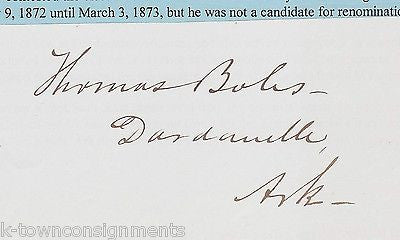 9, 1872 until March 3, 1873, but he was not a candidate for renominatio
Thomas Boles –
Dardanelle,
Ark –
k-townconsignments